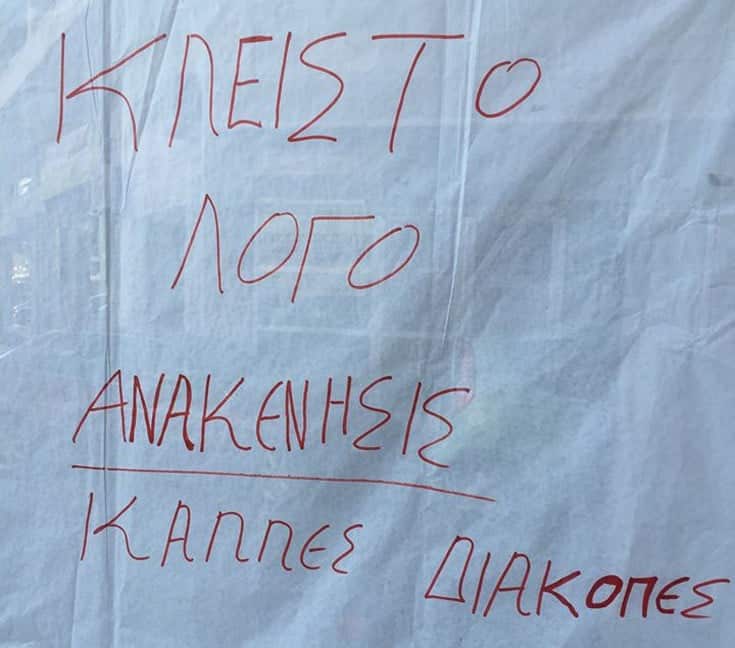 ΚΛΕΙΣΤΟ
ΛΟΓΟ
ΑΝΑΚΕΝΗΣΙΣ
ΚΑΛΛΕΣ ΔΙΑΚΟΠΕΣ